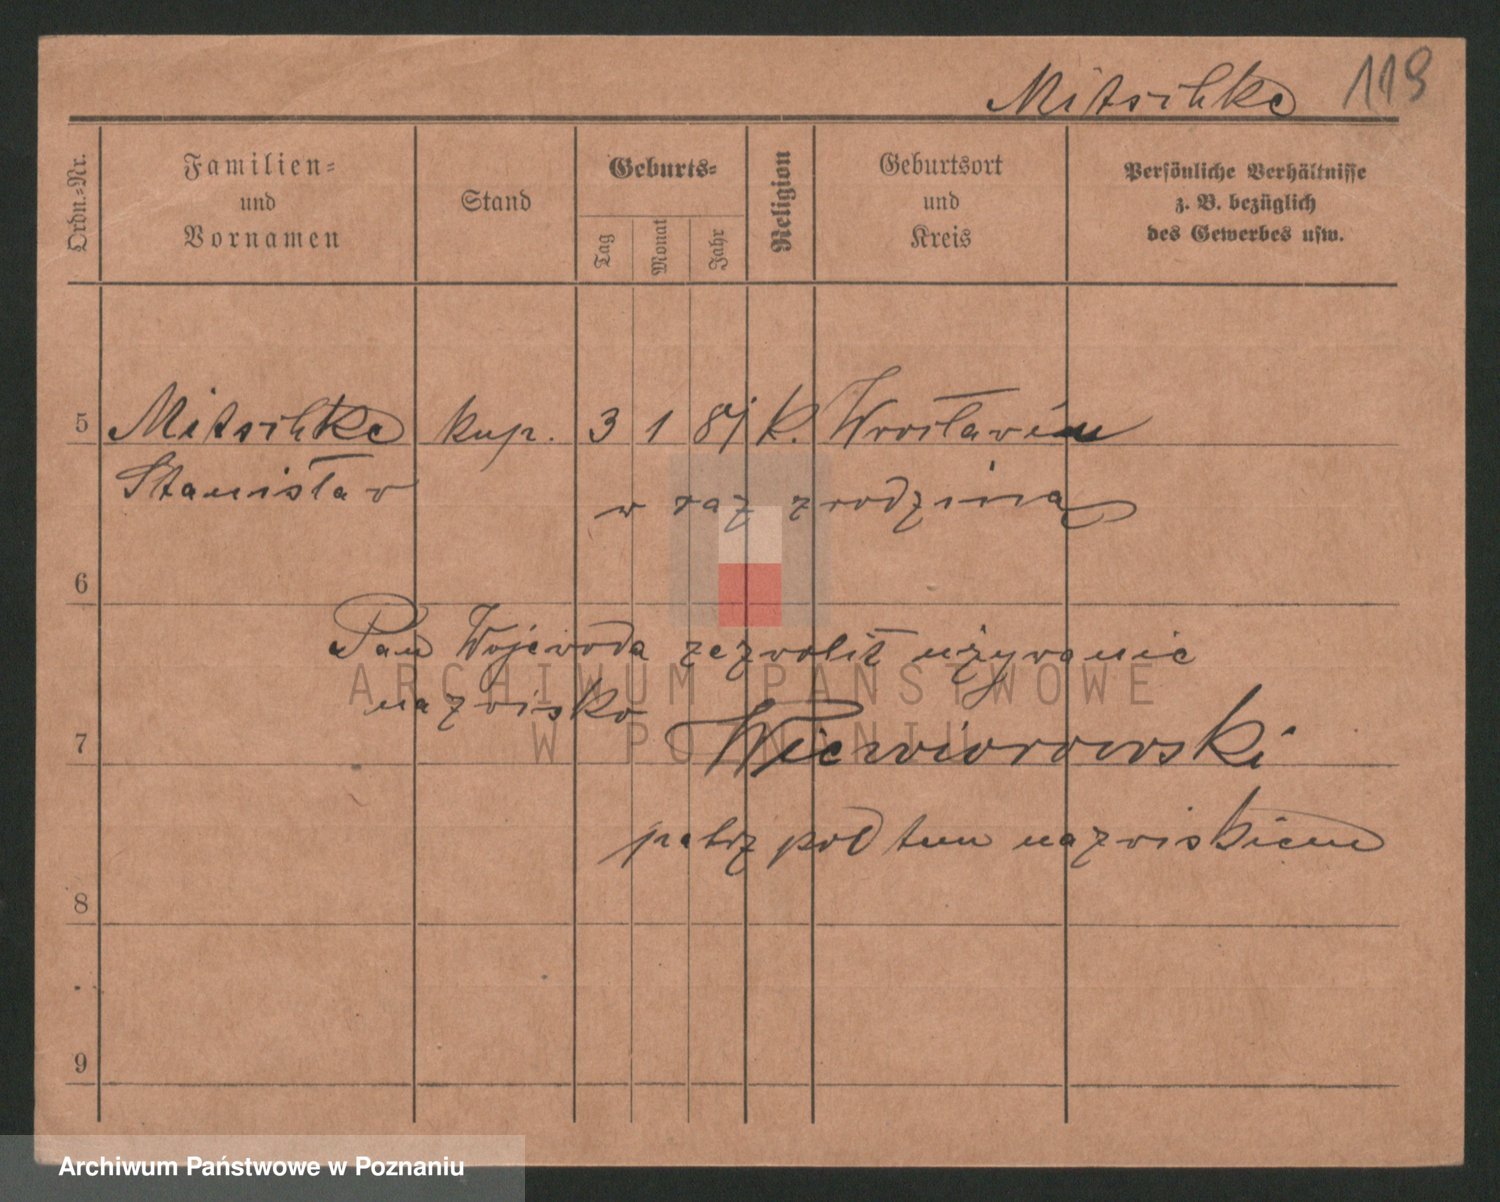 Mitschke 119
Ordn.=Nr.
Familien=
und
Vornamen
Stand
Geburts=
Tag
Monat
Jahr
Religion
Geburtsort
und
Kreis
Persönliche Verhältnisse
z. B. bezüglich
des Gewerbes usw.
5 Mitschke kup. 3 1 81 k. Wrocławiu
Stanisław
w raz z rodziną
6
Pan Wojewoda zezwolił używanie
nazwisko
7 Wierviorowski
patrz pod tem nazwiskiem
8
9
ARCHIWUM PAŃSTWOWE
W POZNANIU
Archiwum Państwowe w Poznaniu